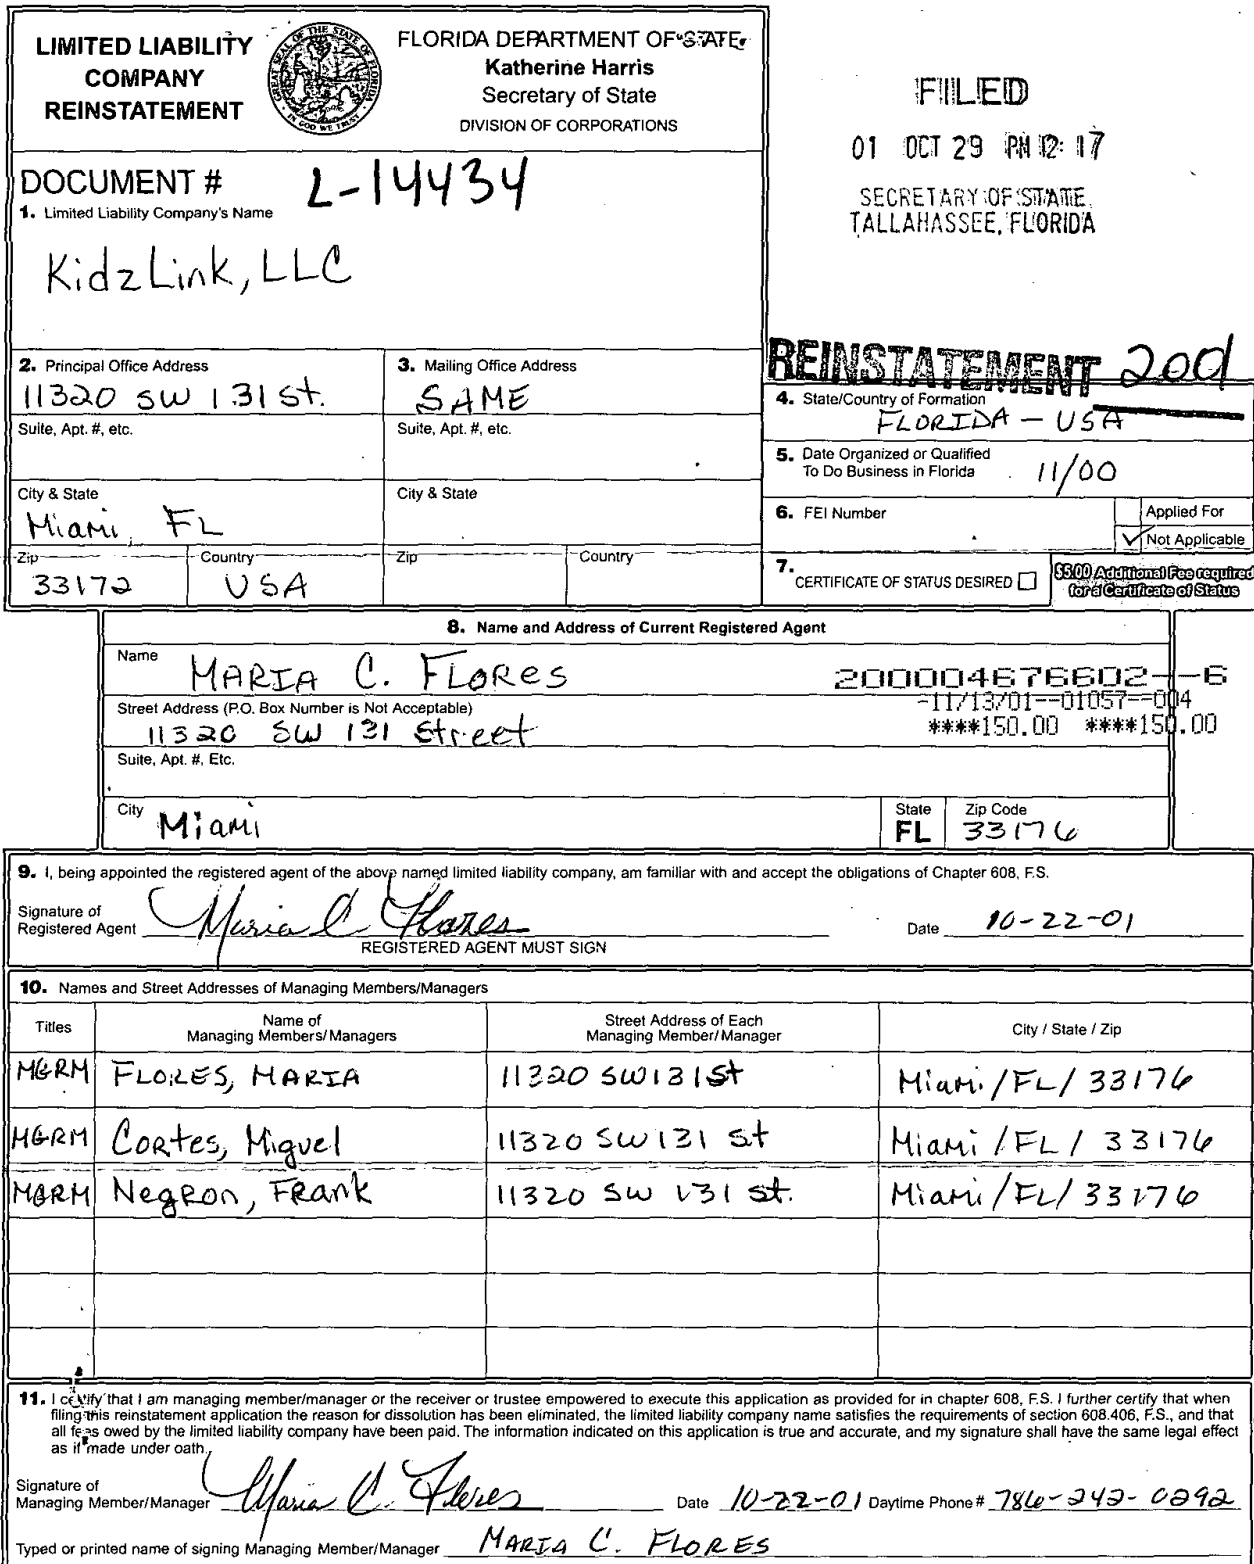 LIMITED LIABILITY
COMPANY
REINSTATEMENT
GREAT SEAL OF THE STATE OF FLORIDA
IN GOD WE TRUST
FLORIDA DEPARTMENT OF STATE
Katherine Harris
Secretary of State
DIVISION OF CORPORATIONS
FILED
01 OCT 29 PM 12: 17
SECRETARY OF STATE
TALLAHASSEE, FLORIDA
DOCUMENT # L-14434
1. Limited Liability Company's Name
KidzLink, LLC
REINSTATEMENT 2001
2. Principal Office Address
11320 SW 131 St.
Suite, Apt. #, etc.
City & State
Miami, FL
Zip
33172
Country
USA
3. Mailing Office Address
SAME
Suite, Apt. #, etc.
City & State
Zip
Country
4. State/Country of Formation
FLORIDA - USA
5. Date Organized or Qualified
To Do Business in Florida 11/00
6. FEI Number
Applied For
✓ Not Applicable
7. CERTIFICATE OF STATUS DESIRED
$5.00 Additional Fee required
for a Certificate of Status
8. Name and Address of Current Registered Agent
Name MARIA C. FLORES
200004676602--6
-11/13/01--01057--004
****150.00 ****150.00
Street Address (P.O. Box Number is Not Acceptable)
11320 SW 131 Street
Suite, Apt. #, Etc.
City Miami
State
FL
Zip Code
33176
9. I, being appointed the registered agent of the above named limited liability company, am familiar with and accept the obligations of Chapter 608, F.S.
Signature of
Registered Agent Maria C Flores Date 10-22-01
REGISTERED AGENT MUST SIGN
10. Names and Street Addresses of Managing Members/Managers
Titles Name of Managing Members/Managers Street Address of Each Managing Member/Manager City / State / Zip
MGRM FLORES, MARIA 11320 SW 131 St Miami/FL/33176
MGRM Cortes, Miguel 11320 SW 131 St Miami/FL/33176
MGRM Negron, Frank 11320 SW 131 St. Miami/FL/33176
11. I certify that I am managing member/manager or the receiver or trustee empowered to execute this application as provided for in chapter 608, F.S. I further certify that when
filing this reinstatement application the reason for dissolution has been eliminated, the limited liability company name satisfies the requirements of section 608.406, F.S., and that
all fees owed by the limited liability company have been paid. The information indicated on this application is true and accurate, and my signature shall have the same legal effect
as if made under oath.
Signature of
Managing Member/Manager Maria C. Flores Date 10-22-01 Daytime Phone # 786-242-0292
Typed or printed name of signing Managing Member/Manager MARIA C. FLORES